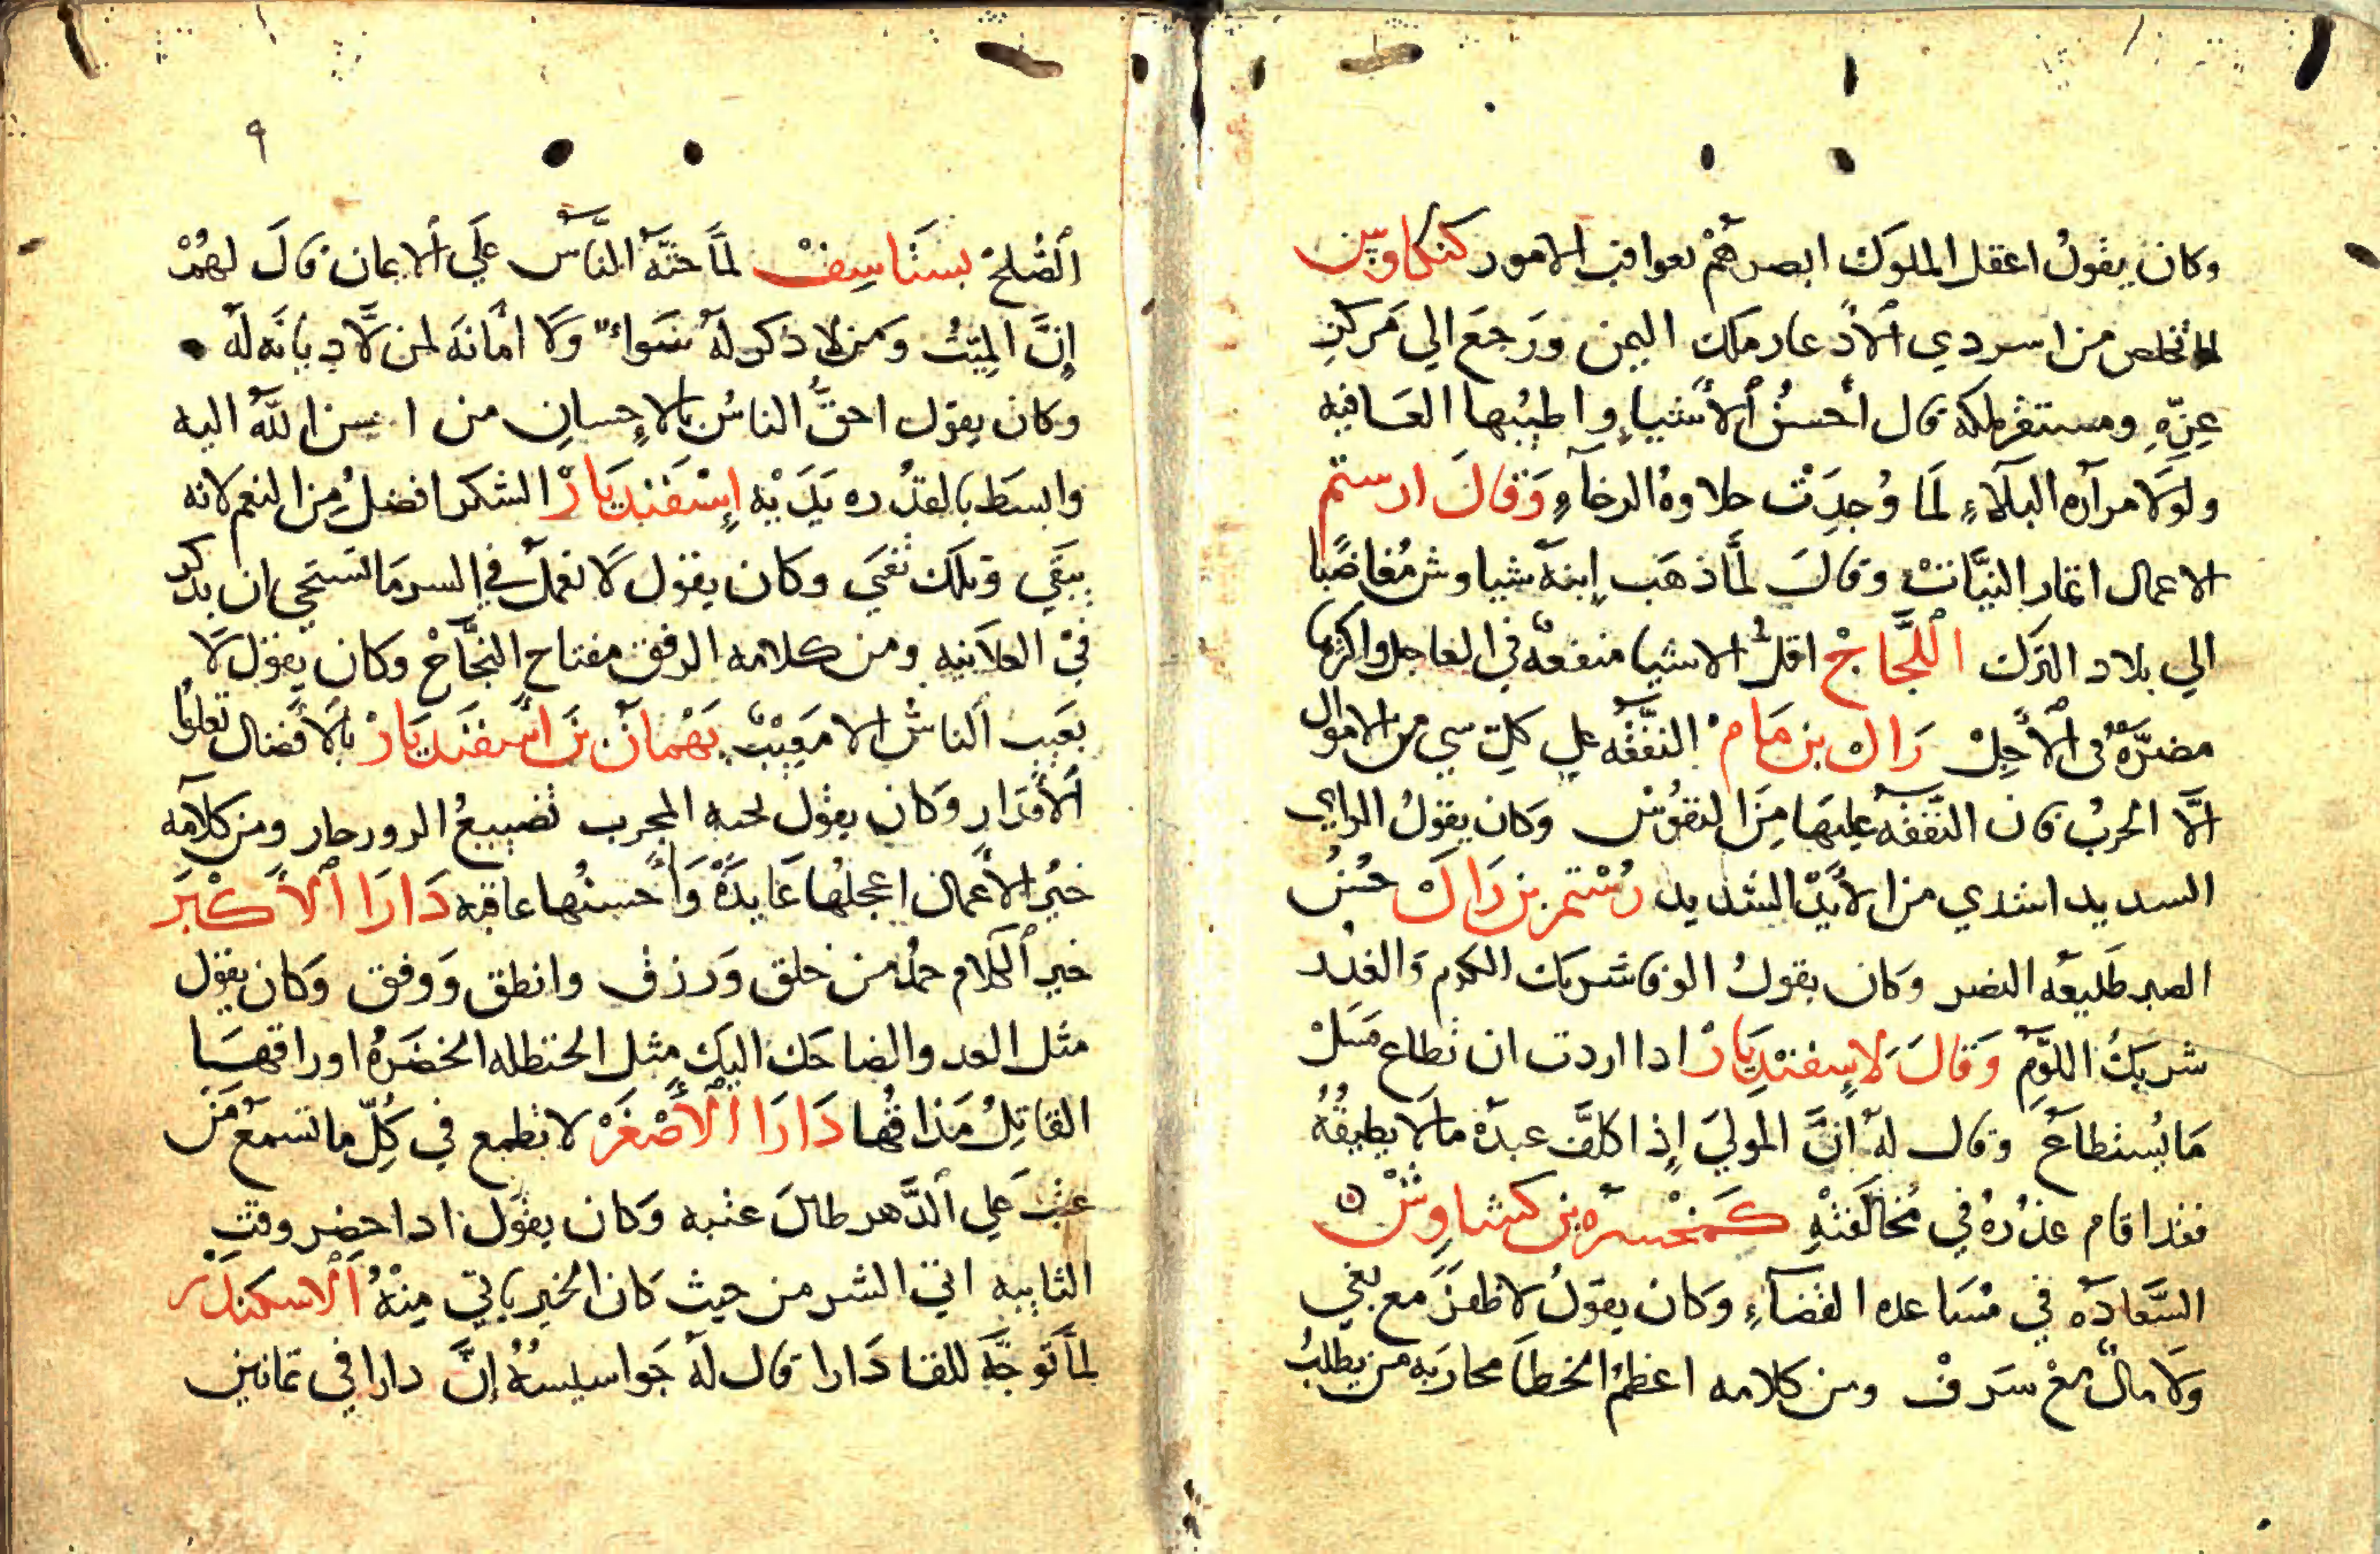 وكان يقولُ اعقل الملوك ابصرهُمْ بعواقب الامور كنكاوس
لما تخلص من اسر دي الاذعار ملك اليمن ورَجعَ الي مَركز
عِزِّهِ ومستقر ملكه قال أحسنُ الأشياءِ واطيبُها العَافيه
ولولا مرآره البلاءِ لَمَا وُجِدَتْ حلاوهُ الرخاءِ وَقَالَ ارستم
الاعمال اثمار النيَّاتْ وقالَ لمَّا ذهَب إبنهُ شياوش مُغاضبًا
الي بلاد الترك اللَّجَاجْ اقلُ الاشيا منفعه في العاجل واكثرها
مضرَّةً في الأَجِلْ زال بن مام النفقَه علي كل شي من الاموال
الَّا الحربُ فان النَّفقَه عليهَا مِنَ النفوُسْ وكان يقولُ الراي
السديد اشدي من الأَيْدِ الشديد رُسْتم بن زَالَ حُسْنُ
الصبر طَليعَه النصر وكان يقولُ الوفا شريك الكرم وَالغدر
شريكُ اللؤمِ وَقَالَ لاسِفنْدِيَارْ ادا اردت ان تطاع فسَلْ
مَا يُستطاعُ وقال لهُ انَّ المولي إذا كلَّف عبدَهُ ما لا يطيقُهُ
فقد اقام عذرُهُ في مُخالفَتْهِ كَنخسره بن كشاوِشْ
السَّعادَه في مُسَاعده القضاءِ وكان يقولُ لا ظفَرَ مع بغيٍ
وَلا مالٌ معْ سَرَفْ ومن كلامه اعظمُ الخطا محاربه من يطلبُ
٩
الصُلحْ بستَاسِفْ لمَّا حثَّهُ النَّاسُ عَلَي الايمان قالَ لهمْ
إنَّ الميِّتُ ومَن لا ذكر لهُ سَواءٌ وَلَا امَانَهَ لمن لَّا دِيانَه لَهُ
وكان يقول احقُّ الناسُ بالإِحسانِ من احسن اللَّهُ اليه
وابسَط بالقدُره يَدَيْه إسْفَنْديَارْ الشكر افضلُ مِنَ النعم لانه
يبقَي وتلك تفني وكان يقول لَا تعملْ في السر مَا تستحي ان يذكر
في العلانيه ومن كلامه الرفق مفتاح النَّجَاحْ وكان يقول لَا
يعَيب الناسُ الا مَعِيْبٌ بَهْمانُ بن اسْفنَديَارْ بالأفضال تعلوا
الأقدَارِ وَكان يقول لحبه المجرب تضييعُ الرورحار ومن كلامه
خيرُ الأعمال اعجلهُا عَايدَةً وَأحْسنُها عاقبه دَارَا الأَكْبَر
خير الكلام حمدُ من خلق وَرزق وانطق وَوفق وَكان يقول
مثل العد والضاحك اليك مثل الحنظله الخضرَهُ اوراقهَا
القاتِلُ مَذاقُها دَارَا الأَصْغَرْ لا تطمع في كُلِّ ما تسمع مَنْ
عتب علي الدَّهر طالَ عتبه وَكان يقول ادا حضر وقت
النايبه اتي الشر من حيث كان الخير ياتي مِنْهُ الاسكندَر
لمَّا توجَّه للقا دَارا قال لهُ جَواسيسُهُ إنَّ دارا في ثمانين